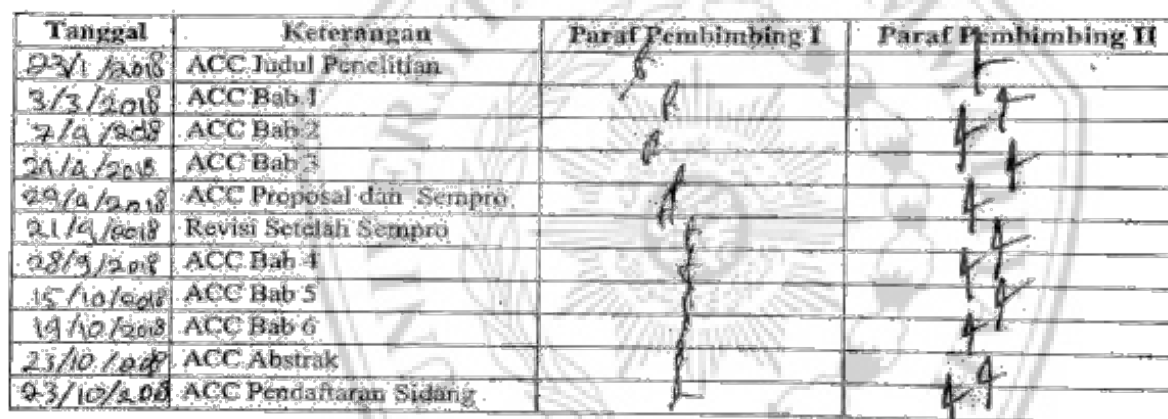 Tanggal Keterangan Paraf Pembimbing I Paraf Pembimbing II
23/1/2018 ACC Judul Penelitian
3/3/2018 ACC Bab 1
ACC Bab 2
ACC Bab 3
ACC Proposal dan Sempro
Revisi Setelah Sempro
28/9/2018 ACC Bab 4
15/10/2018 ACC Bab 5
19/10/2018 ACC Bab 6
23/10/ ACC Abstrak
23/10/ ACC Pendaftaran Sidang